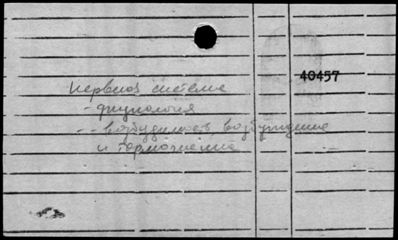 40457
Нервная система
- физиология
-- возбудимость, возбуждение
и торможение